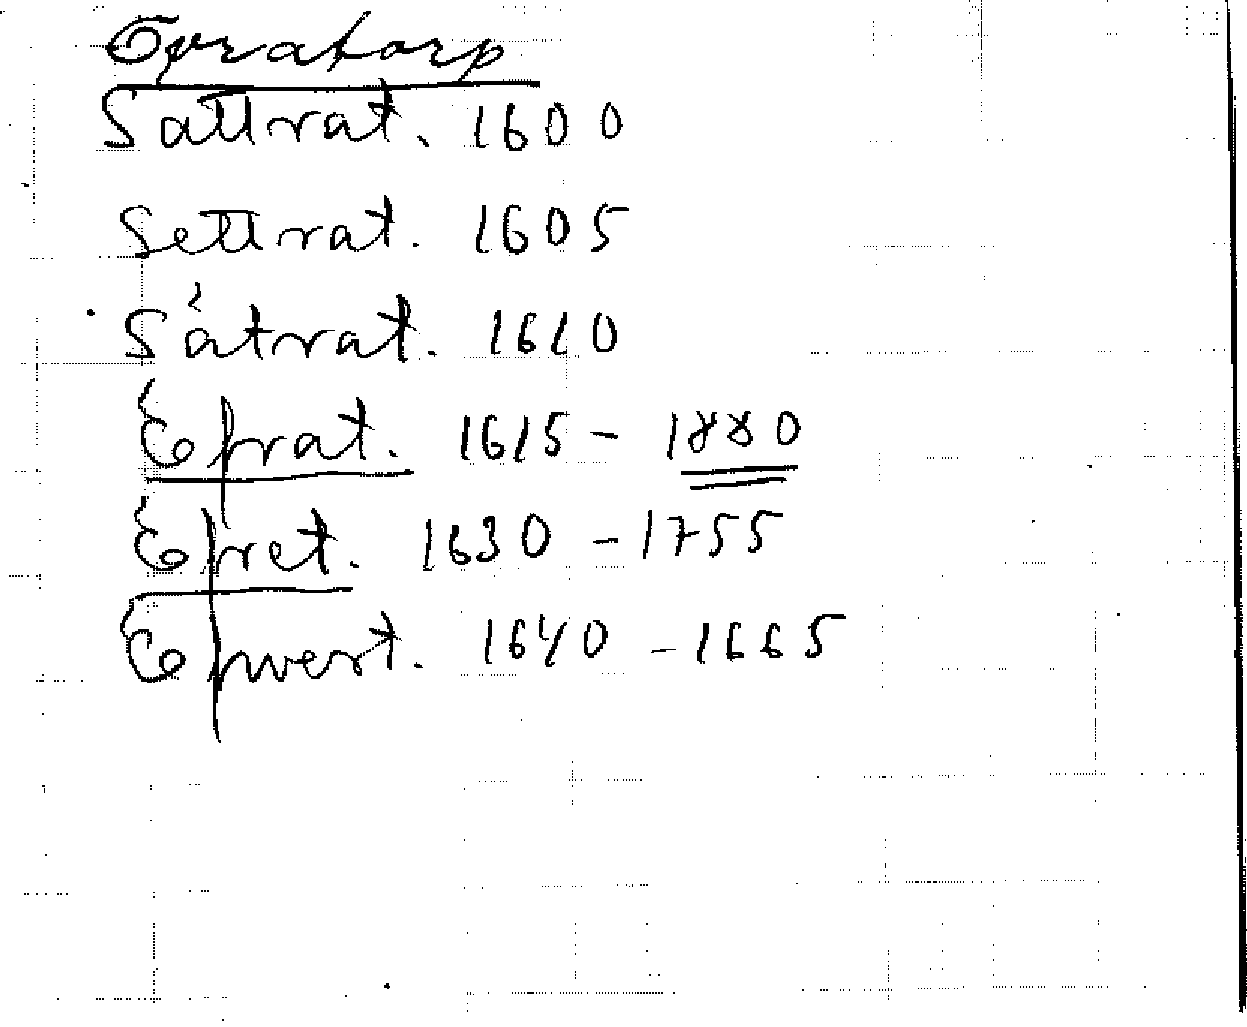 Epratorp
Sattrat. 1600
Settrat. 1605
Såtrat. 1610
Eprat. 1615 - 1880
Epret. 1630 - 1755
Epwert. 1640 - 1665